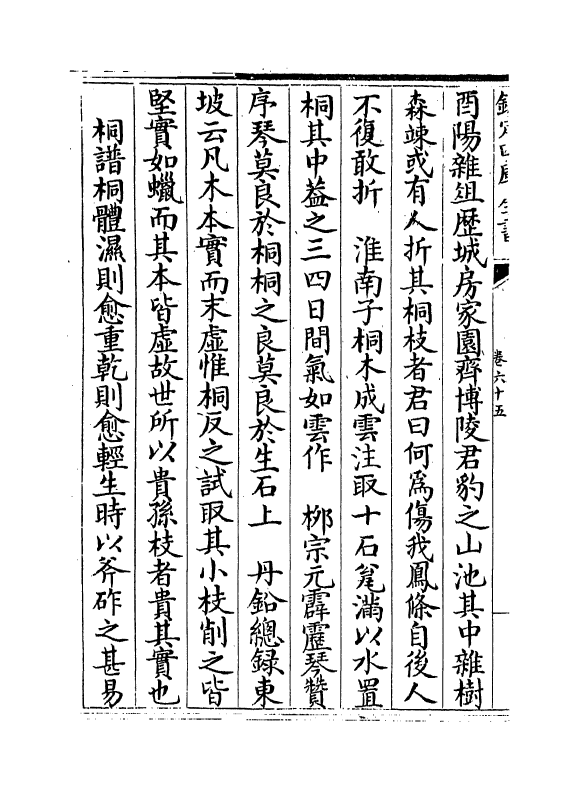 欽定四庫全書
卷六十五
酉陽雜俎歴城房家園齊博陵君豹之山池其中雜樹
森竦或有人折其桐枝者君曰何為傷我鳳條自後人
不復敢折　淮南子桐木成雲注取十石瓮滿以水置
桐其中葢之三四日間氣如雲作　桺宗元霹靂琴贊
序琴莫良於桐桐之良莫良於生石上　丹鉛總録東
坡云凡木本實而末虚惟桐反之試取其小枝削之皆
堅實如蠟而其本皆虚故世所以貴孫枝者貴其實也
桐譜桐體濕則愈重乾則愈輕生時以斧斫之甚易